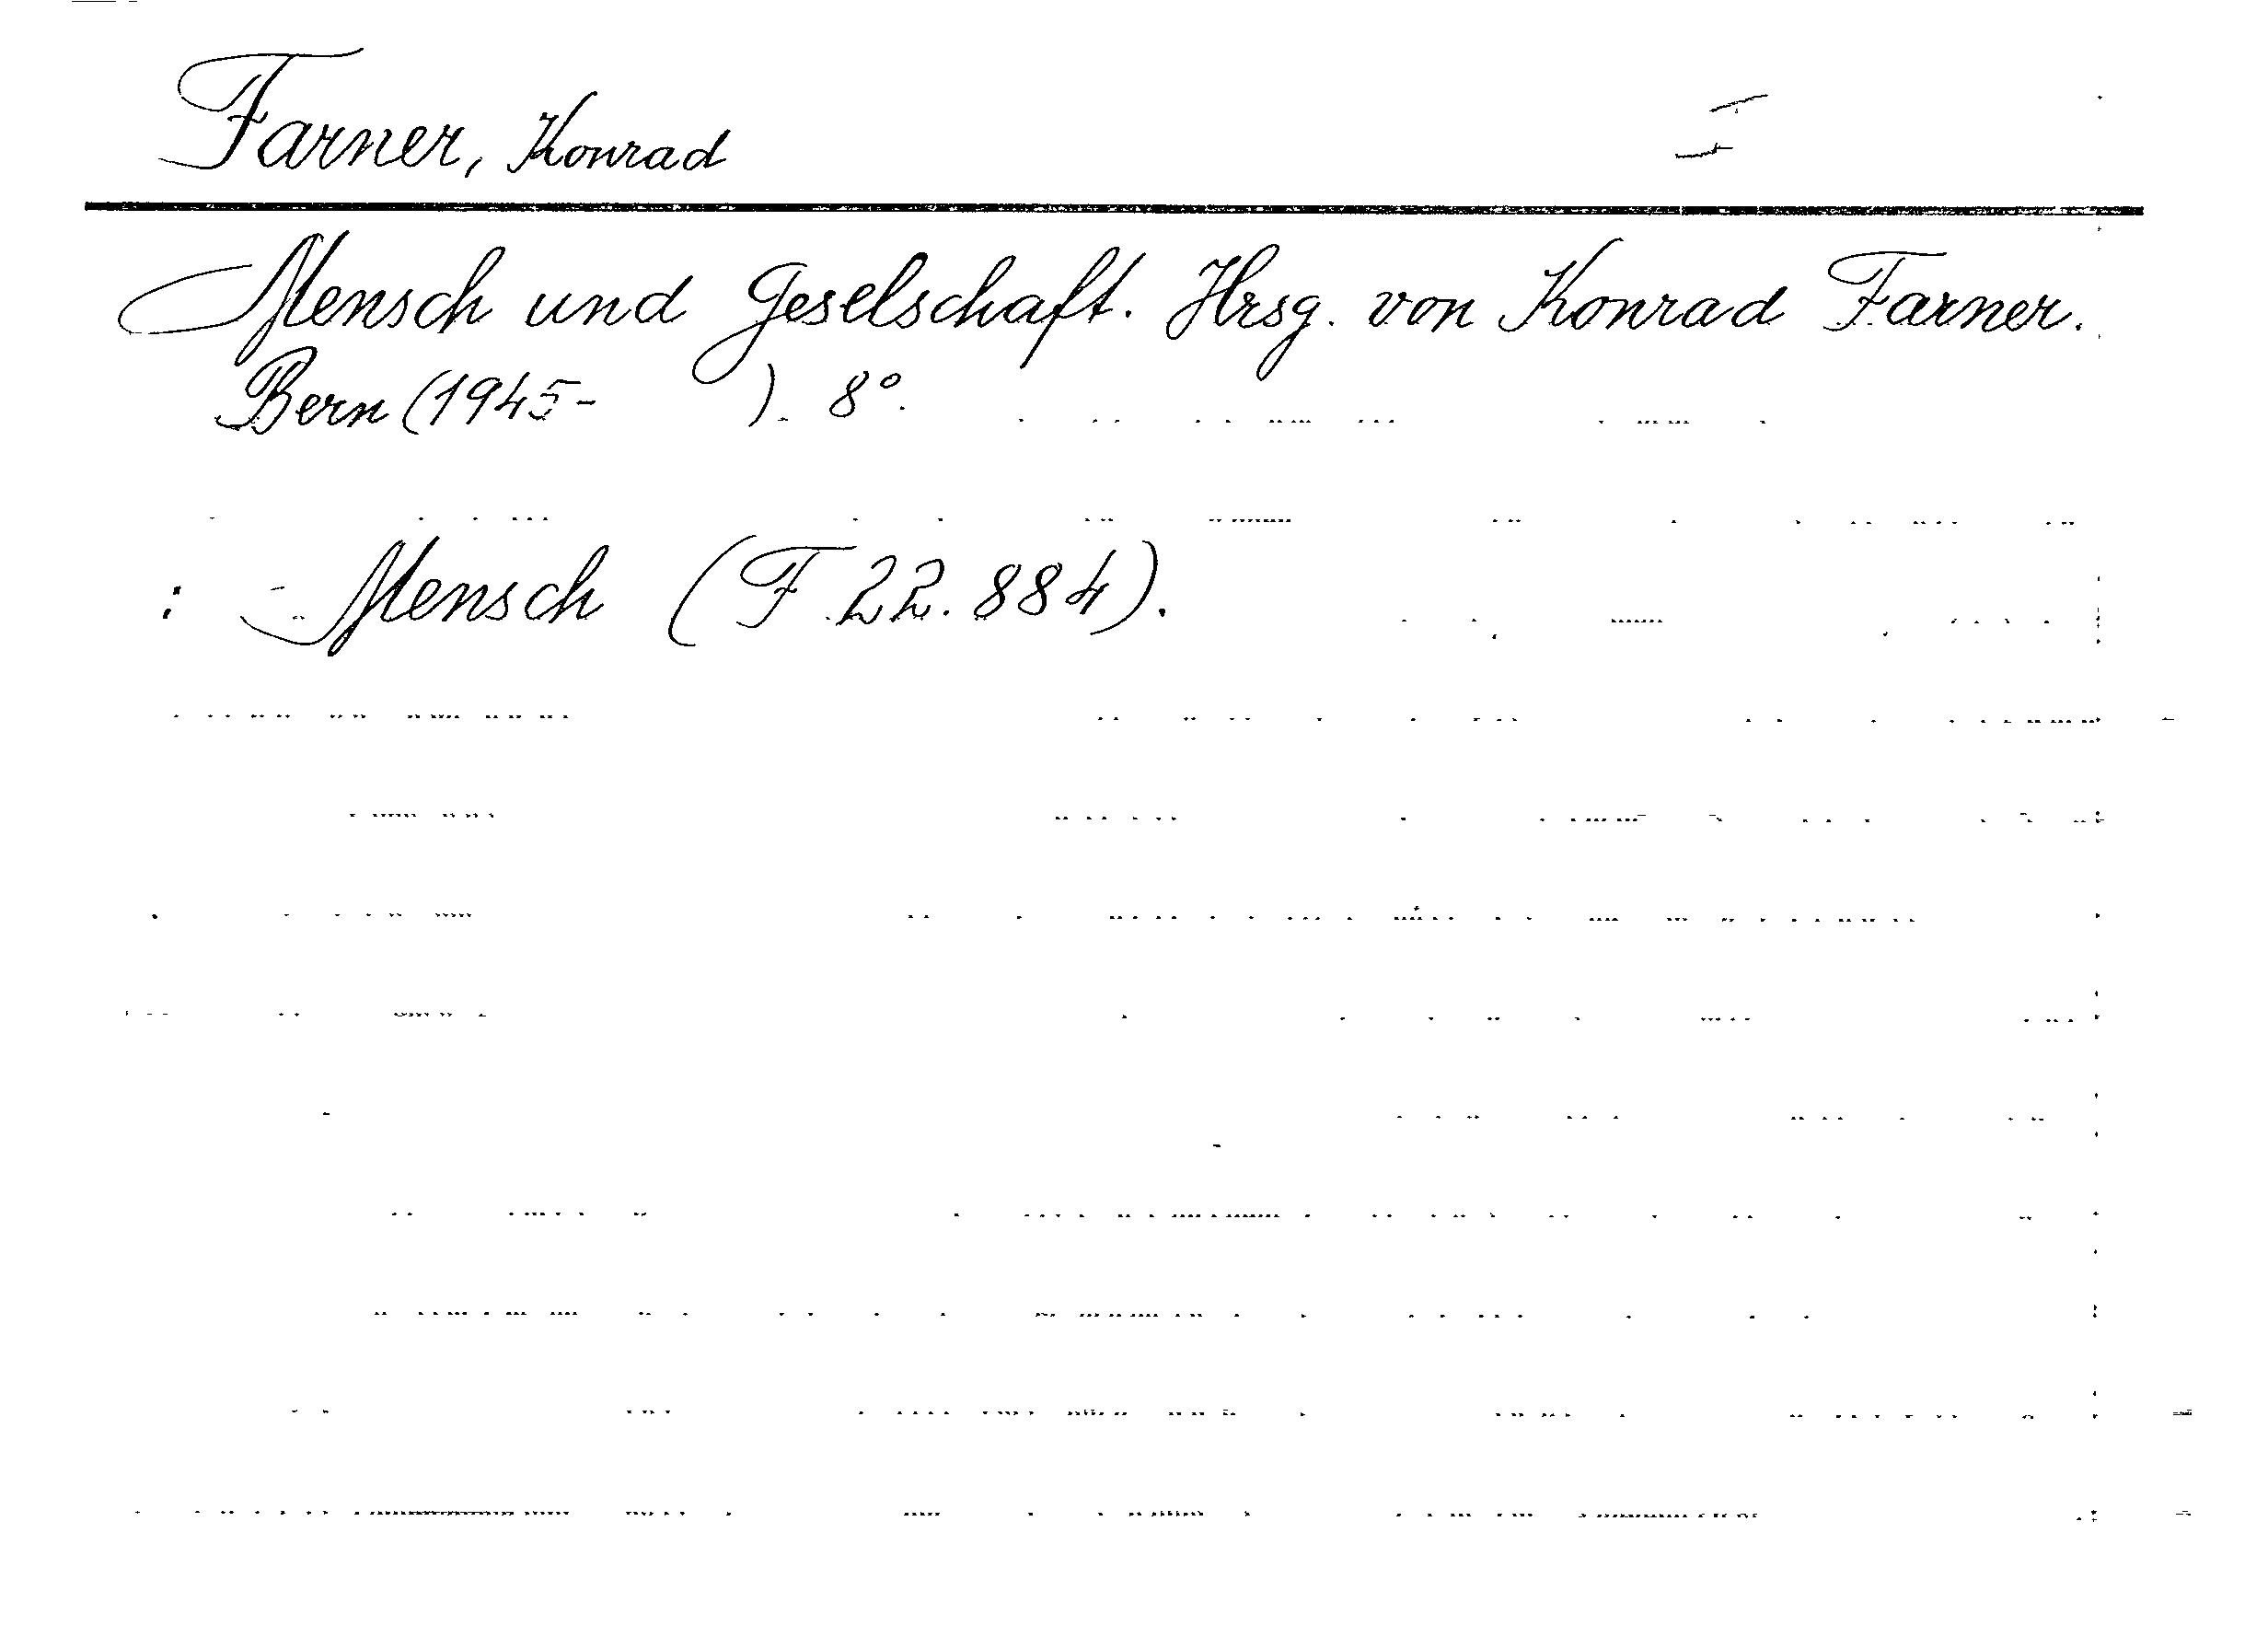 Farner, Konrad
Mensch und Geselschaft. Hrsg. von Konrad Farner.
Bern (1945- ). 8°.
: Mensch (F 22.884).